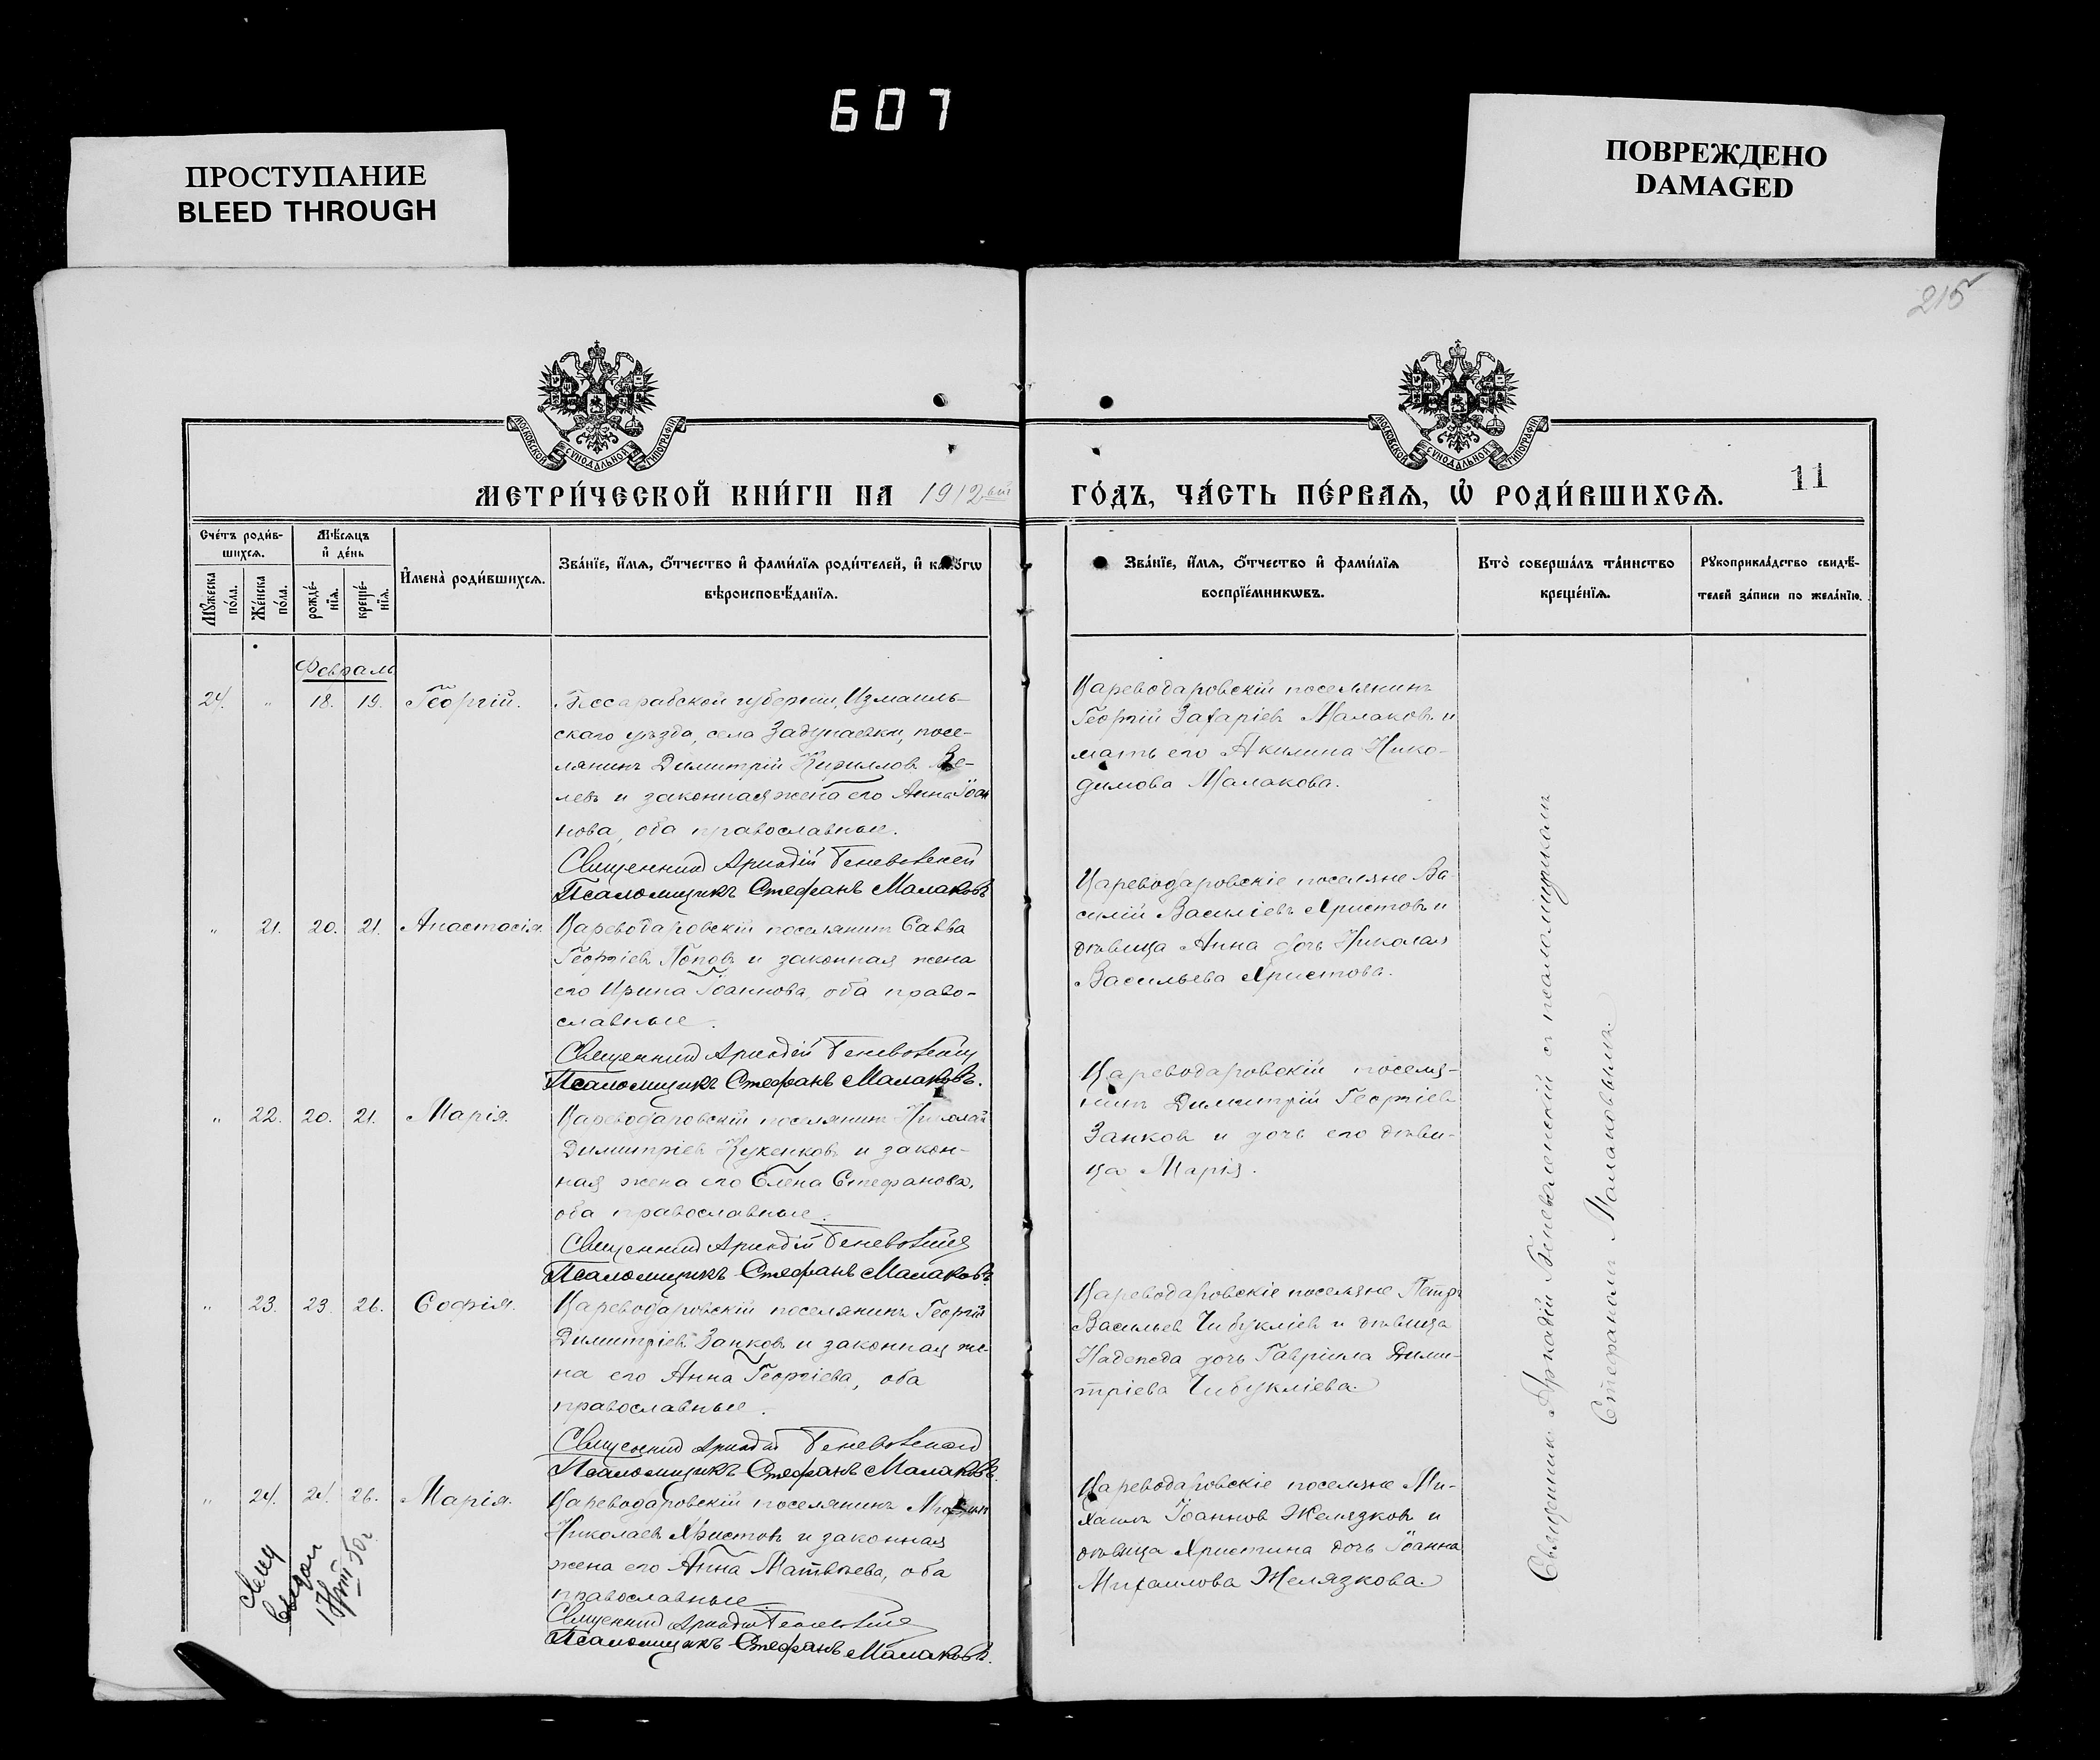 607
ПРОСТУПАНИЕ
BLEED THROUGH
ПОВРЕЖДЕНО
DAMAGED
215
МОСКОВСКОЙ СѴНОДАЛЬНОЙ ТИПОГРАФІИ
МОСКОВСКОЙ СѴНОДАЛЬНОЙ ТИПОГРАФІИ
МЕТРИ́ЧЕСКОЙ КНИ́ГИ НА 1912
ГО́ДЪ, ЧА́СТЬ ПЕ́РВАѦ, Ѡ҆ РОДИ́ВШИХСѦ.
11
Сче́тъ роди́в-
шихсѧ.
Мѣ́сѧцъ
и҆ де́нь
Мꙋ́жеска по́ла.
Же́нска по́ла.
рожде́-
нїѧ.
креще́-
нїѧ.
И҆мена̀ роди́вшихсѧ.
Зва́нїе, и҆́мѧ, ѻ҆́тчество и҆ фами́лїѧ роди́телей, и҆ како́гѡ
вѣроисповѣ́данїѧ.
Зва́нїе, и҆́мѧ, ѻ҆́тчество и҆ фами́лїѧ
воспрїе́мникѡвъ.
Кто̀ соверша́лъ та́инство
креще́нїѧ.
Рꙋкоприкла́дство свидѣ́-
телей за́писи по жела́нїю.
Февраль
24. " 18. 19. Георгій.
Бессарабской губерніи, Измаиль-
скаго уѣзда, села Задунаевки, посе-
лянинъ Димитрій Кириллов
левъ и законная жена его Анна Іоан
нова, оба православные.
Священникъ Аркадій Беневоленскій
Псаломщикъ Стефанъ Малаковъ
Цареводаровскій поселянинъ
Георгій Захаріев Малаковъ и
мать его Акилина Нико-
димова Малакова.
" 21. 20. 21. Анастасія.
Цареводаровскій поселянинъ Савва
Георгіев Попов и законная жена
его Ирина Іоаннова, оба право-
славные.
Священникъ Аркадій Беневоленскій
Псаломщикъ Стефанъ Малаковъ.
Цареводаровскіе поселяне Ва
силій Василіевъ Христовъ и
дѣвица Анна дочь Николая
Васильева Христова.
" 22. 20. 21. Марія.
Цареводаровскій поселянинъ Николай
Димитріев Куженковъ и закон-
ная жена его Елена Стефанова,
оба православные.
Священникъ Аркадій Беневоленскій
Псаломщикъ Стефанъ Малаковъ.
Цареводаровскій поселя-
нинъ Димитрій Георгіев
Занков и дочь его дѣви-
ца Марія.
" 23. 23. 26. Софія.
Цареводаровскій поселянинъ Георгій
Димитріев Занков и законная же
на его Анна Георгіева, оба
православные.
Священникъ Аркадій Беневоленскій
Псаломщикъ Стефанъ Малаковъ.
Цареводаровскіе поселяне Петръ
Васильев Чибукліев и дѣвица
Надежда дочь Гавріила Дими-
тріева Чибукліева.
" 24. 24. 26. Марія.
Цареводаровскій поселянинъ
Николаев Христовъ и законная
жена его Анна Матвѣева, оба
православные.
Священникъ Аркадій Беневоленскій
Псаломщикъ Стефанъ Малаковъ.
Цареводаровскіе поселяне Ми-
хаилъ Іоаннов Желязков и
дѣвица Христина дочь Іоанна
Михаилова Желязкова.
Священник Аркадій Беневоленскій с псаломщикам
Стефаномъ Малаковымъ.